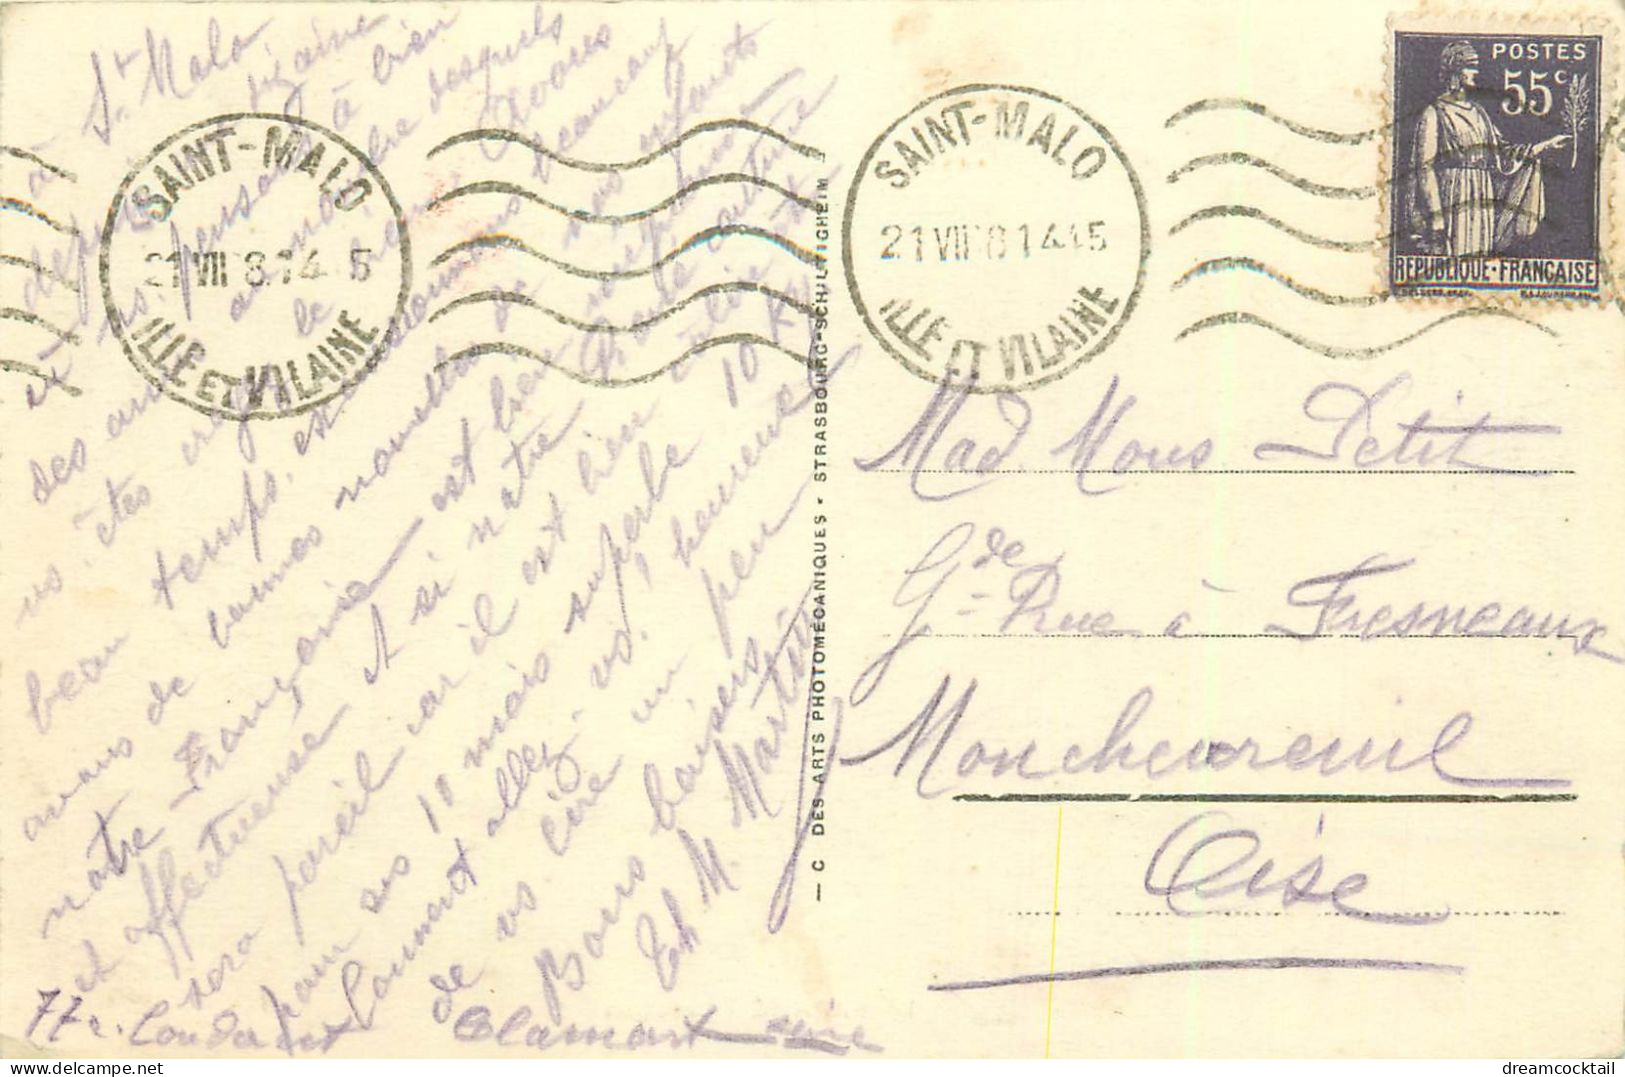 à St Malo
depuis dizaine
et ns. pensons à bien
des amis au nombre desquels
vs. êtes croyez le bien. Avons
beau temps. et. beaucoup
avons de bonnes nouvelles de nos enfants
notre Françoise est bien
et affectueuse. Et si notre
sera pareil car il est bien
pour ses 10 mois superbe 10 K
Comment allez. vs. heureuse
de vs lire un peu
Bons baisers
Th M. Martin
77 r. Condorcet Clamart Seine
SAINT-MALO
21 VII 8 14 15
ILLE ET VILAINE
SAINT-MALO
21 VII 8 14 15
ILLE ET VILAINE
POSTES
55c
REPUBLIQUE-FRANÇAISE
— C DES ARTS PHOTOMÉCANIQUES - STRASBOURG-SCHILTIGHEIM
Mad. Mons Petit
Gde Rue à Fresneaux
Moncheureuil
Oise
dreamcocktail